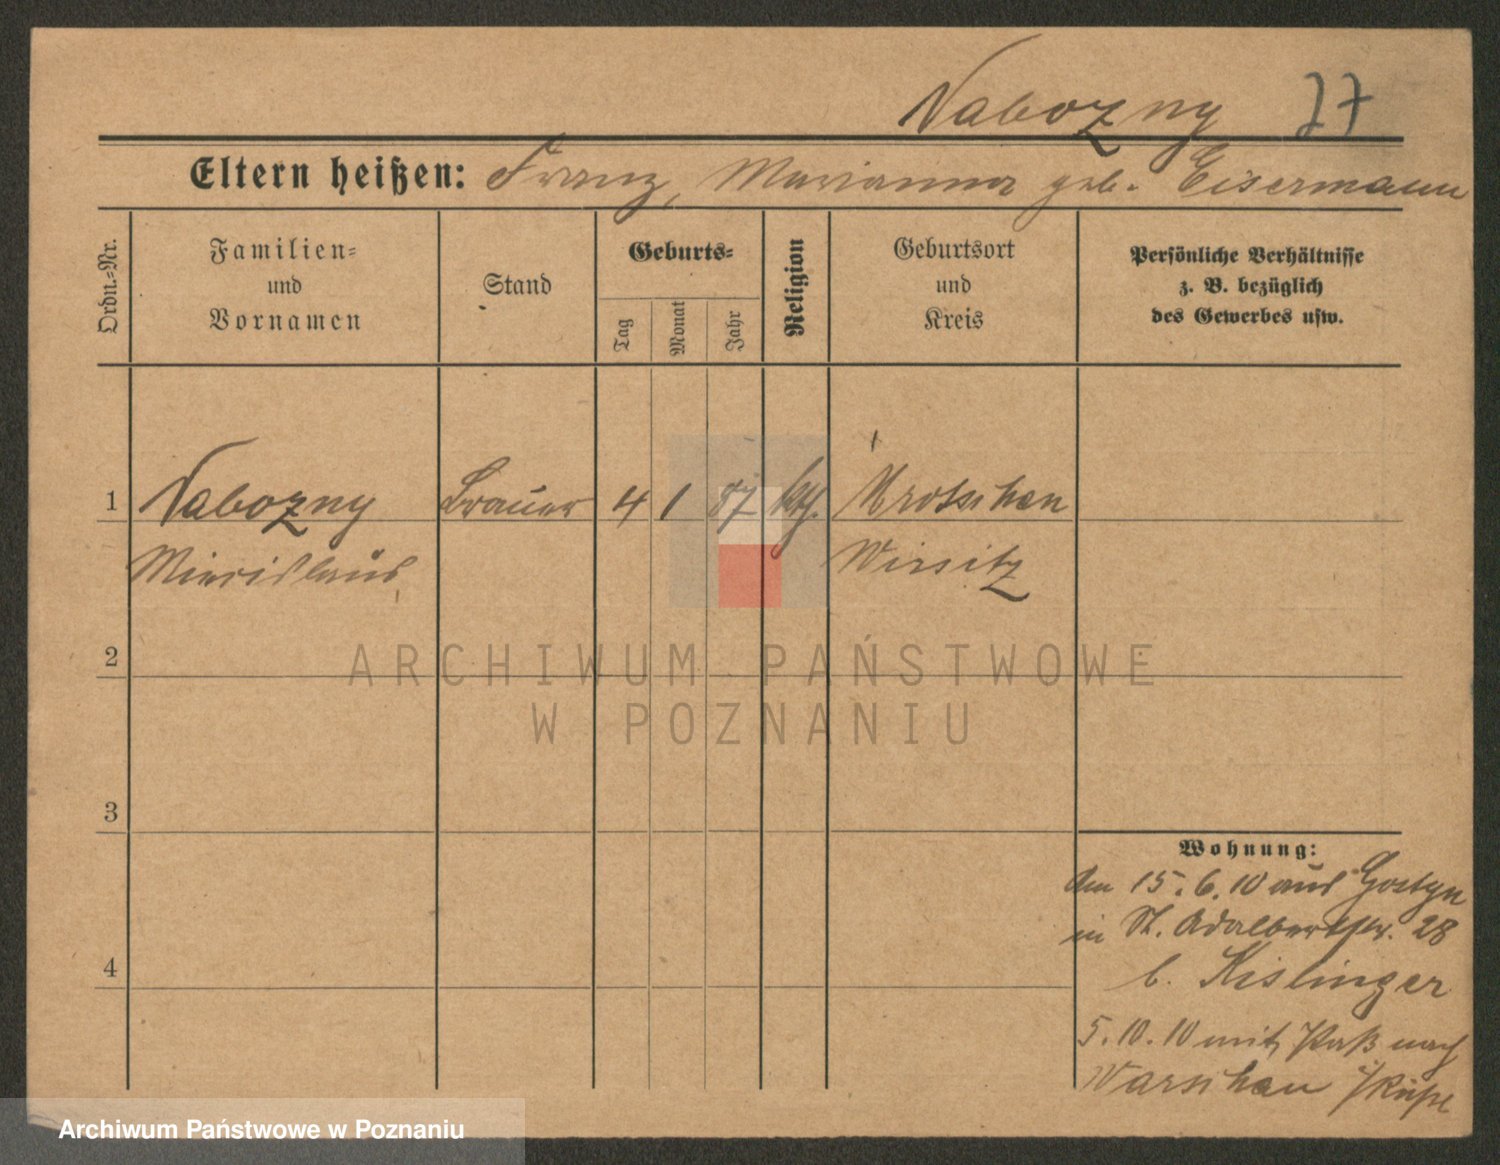 Nabozny 27
Eltern heißen: Franz, Marianna geb. Eisermann
Ordn.=Nr.
Familien=
und
Vornamen
Stand
Geburts=
Tag
Monat
Jahr
Religion
Geburtsort
und
Kreis
Persönliche Verhältnisse
z. B. bezüglich
des Gewerbes usw.
1 Nabozny Brauer 4 1 87 kth. Mrotschen
Wirsitz
2
ARCHIWUM PAŃSTWOWE
W POZNANIU
3
Wohnung:
den 15.6.10 aus Gostyn
in St. Adalbertstr. 28
4
b. Kislinger
5.10.10 mit Paß nach
Warschau
Archiwum Państwowe w Poznaniu